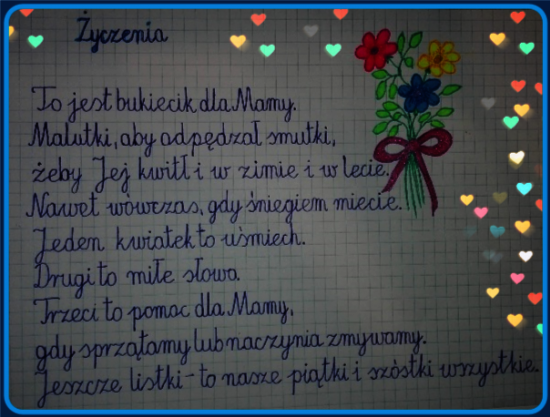 Życzenia
To jest bukiecik dla Mamy.
Malutki, aby odpędzał smutki,
żeby Jej kwitł i w zimie i w lecie.
Nawet wówczas, gdy śniegiem miecie.
Jeden kwiatek to uśmiech.
Drugi to miłe słowa
Trzeci to pomoc dla Mamy,
gdy sprzątamy lub naczynia zmywamy.
Jeszcze listki - to nasze piątki i szóstki wszystkie.